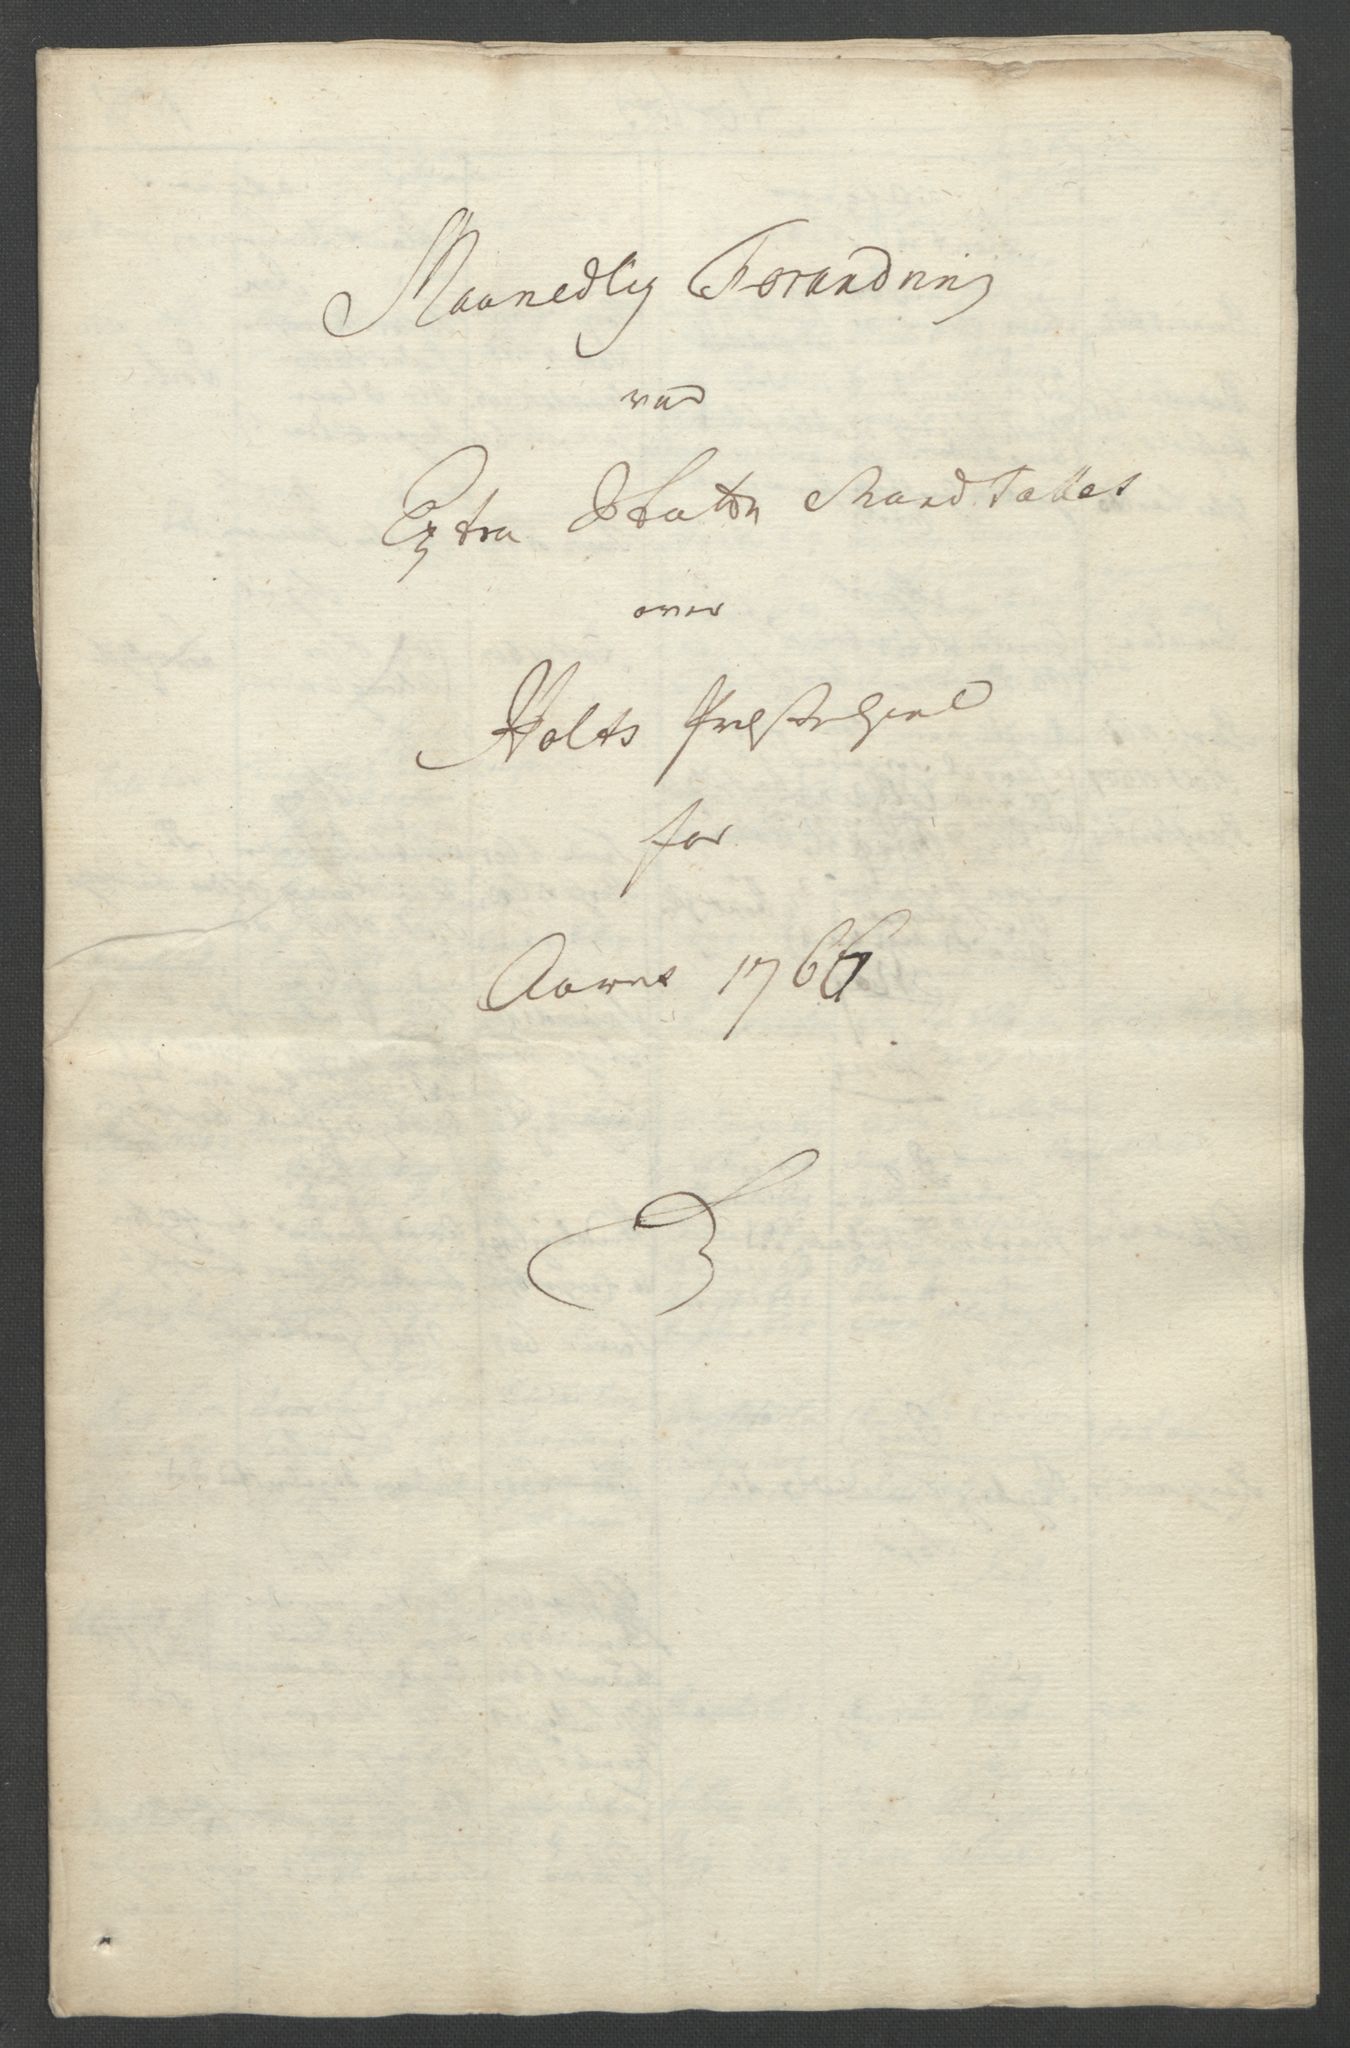 Maanedlig Forandring
ved
Extra Skatte Mandtallet
over
Holts Præstegield
for
Aaret 1766